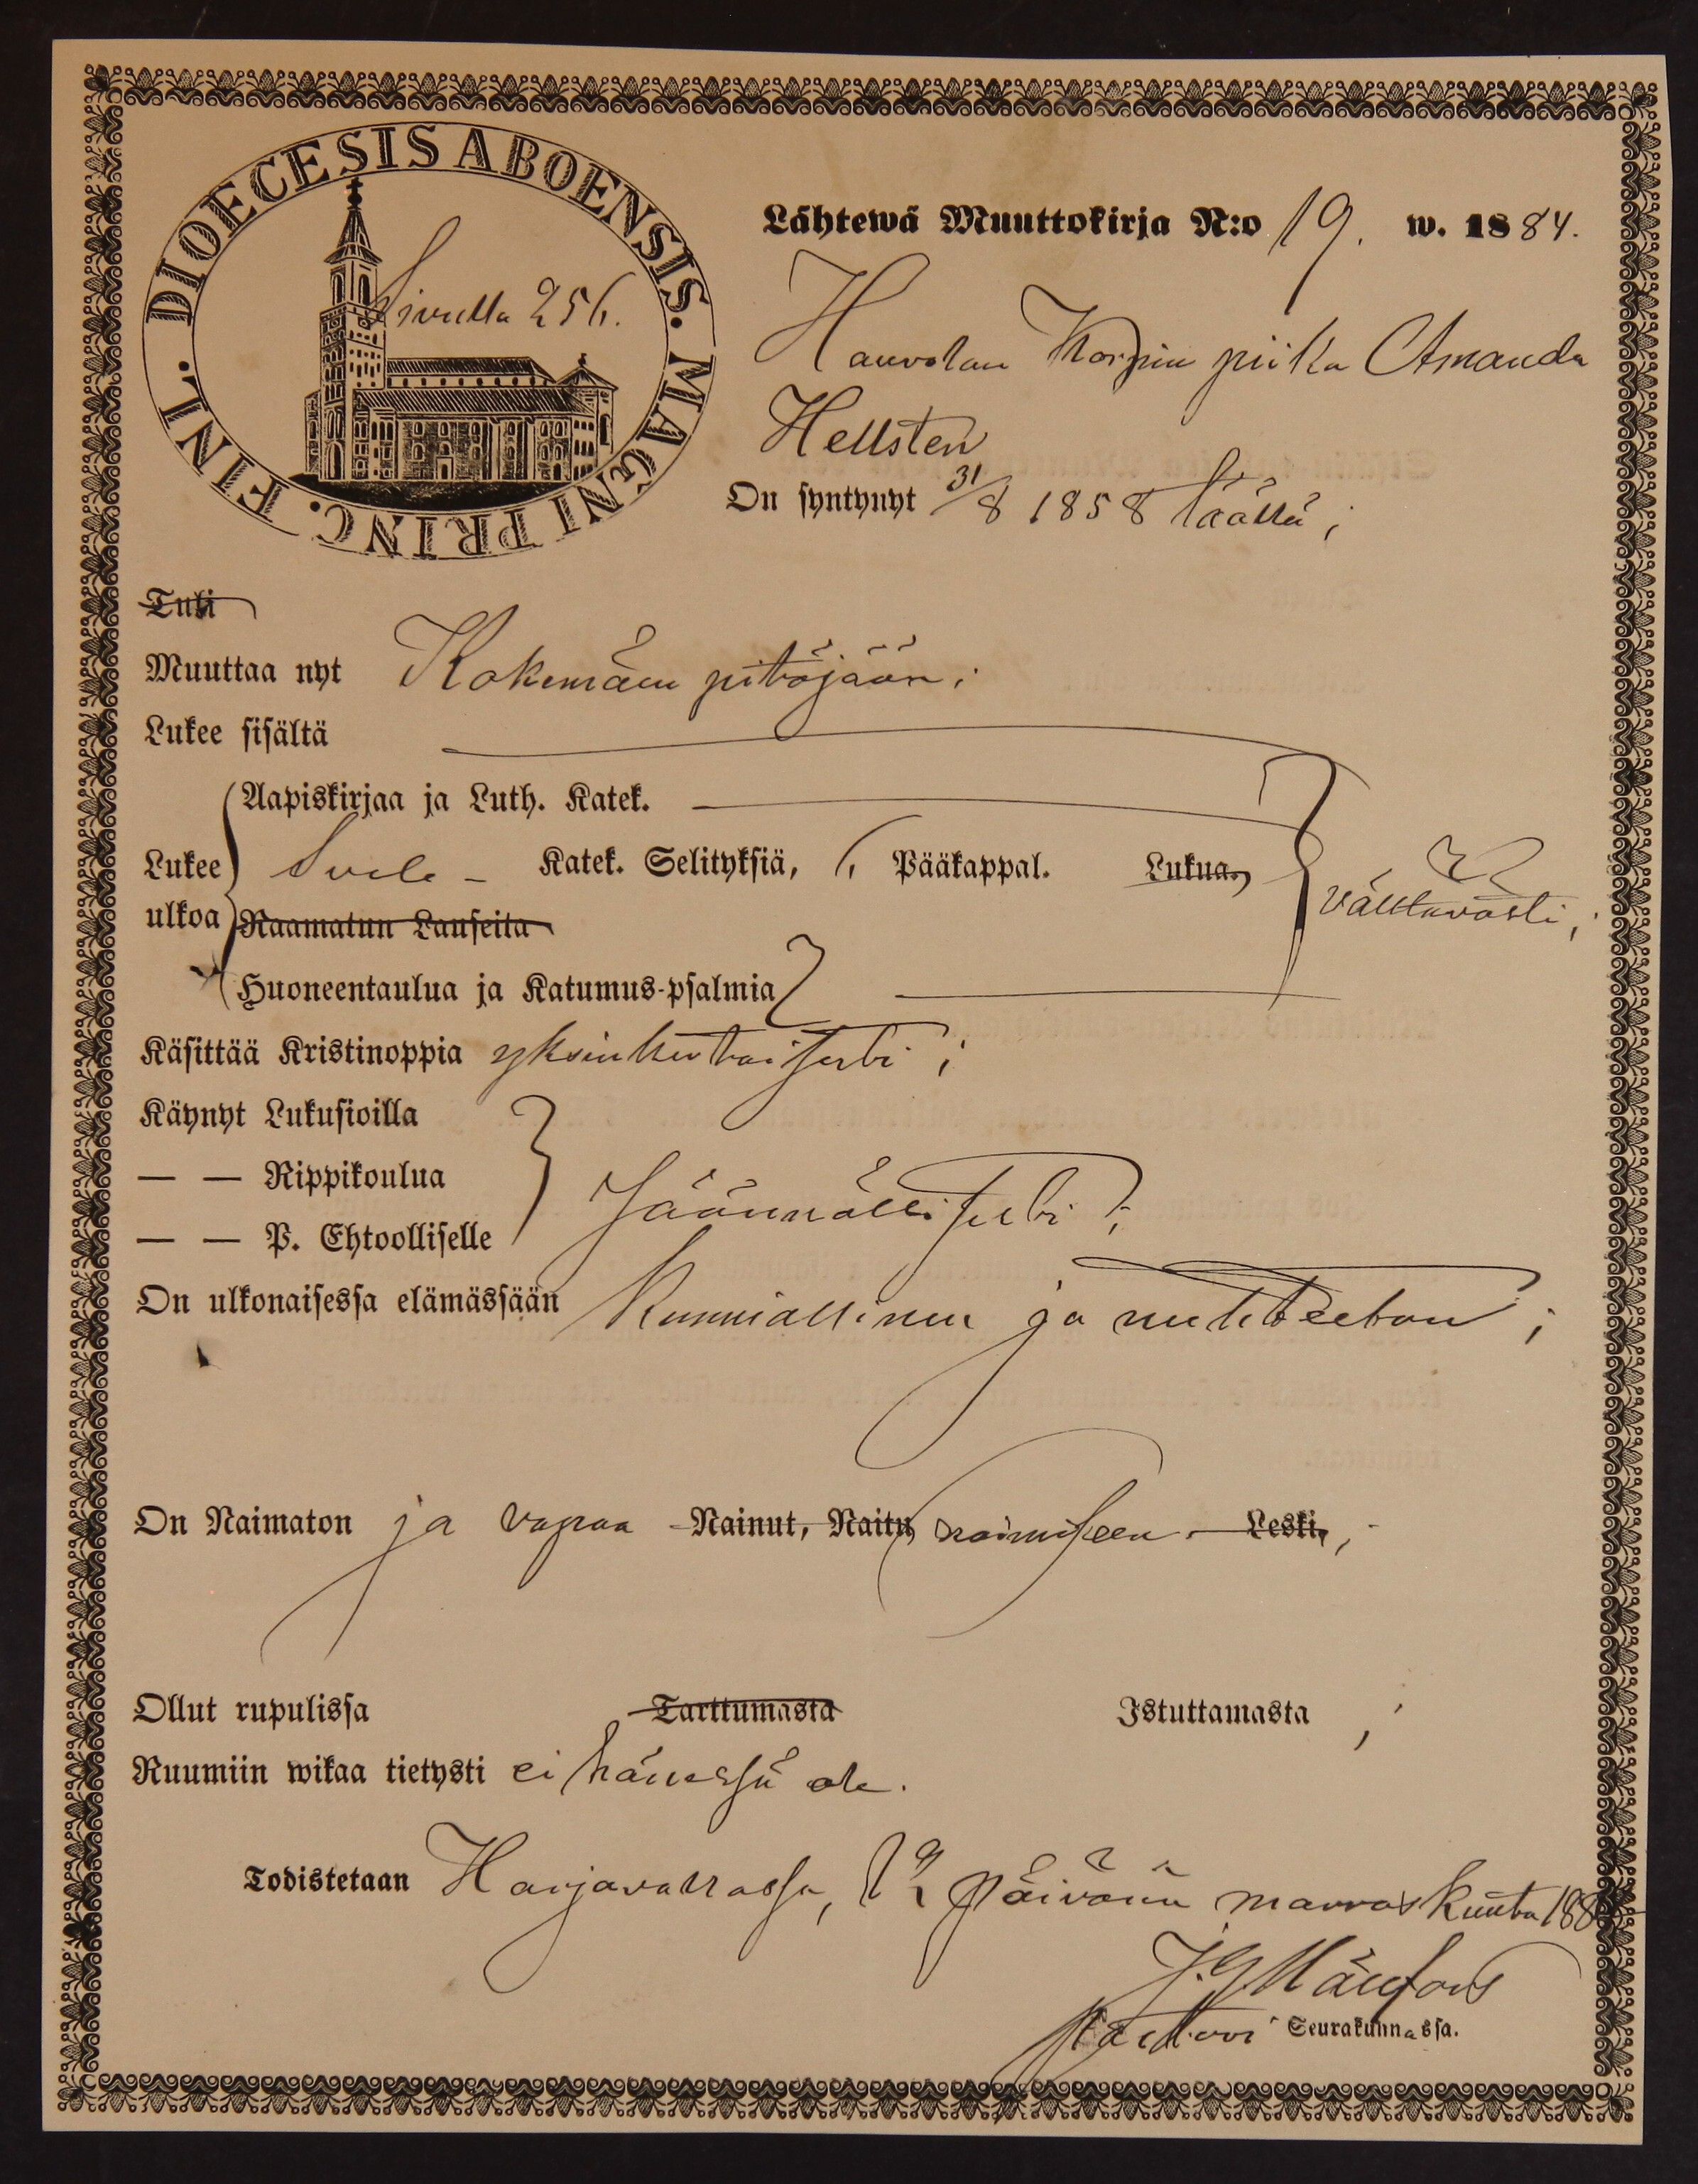 DIOECESIS ABOENSIS. MAGNI PRINC. FINL.
Sivulla 256.
Lähtewä Muuttokirja N:o 19. w. 1884.
Hauvolan Korpin piika Amanda
Hellsten
On syntynyt 31/8 1858 täällä;
Tuli
Muuttaa nyt Kokemäen pitäjään;
Lukee sisältä
Aapiskirjaa ja Luth. Katek.
Lukee Svele - Katek. Selityksiä, Pääkappal. Lukua, välttävästi;
ulkoa Raamatun Lauseita
Huoneentaulua ja Katumus-psalmia
Käsittää Kristinoppia yksinkertaisesti;
Käynyt Lukusioilla
— — Rippikoulua
— — P. Ehtoolliselle Säännöllisesti;
On ulkonaisessa elämässään Kunniallinen ja nuhteeton;
On Naimaton ja vapaa Nainut, Naitu, naimiseen. Leski,;
Ollut rupulissa Tarttumasta Istuttamasta;
Ruumiin wikaa tietysti ei hänessä ole.
Todistetaan Harjavallassa, päivänä marraskuuta 188
J. G.
Pastori Seurakunnassa.